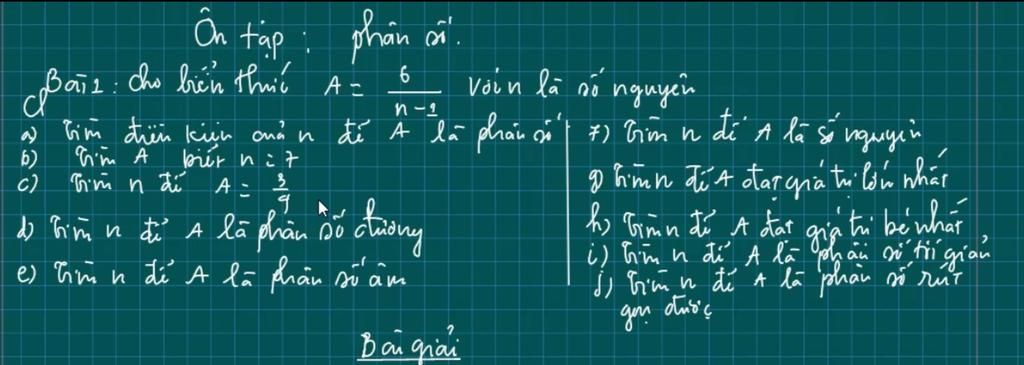 Ôn tập : phân số.
Bài 1 : Cho biến thức A = 6/(n-1) với n là số nguyên
a) Tìm điều kiện của n để A là phân số
b) Tìm A biết n = 7
c) Tìm n để A = 3/4
d) Tìm n để A là phân số dương
e) Tìm n để A là phân số âm
7) Tìm n để A là số nguyên
g) Tìm n để A đạt giá trị lớn nhất
h) Tìm n để A đạt giá trị bé nhất
i) Tìm n để A là phân số tối giản
j) Tìm n để A là phân số rút
gọn được
Bài giải